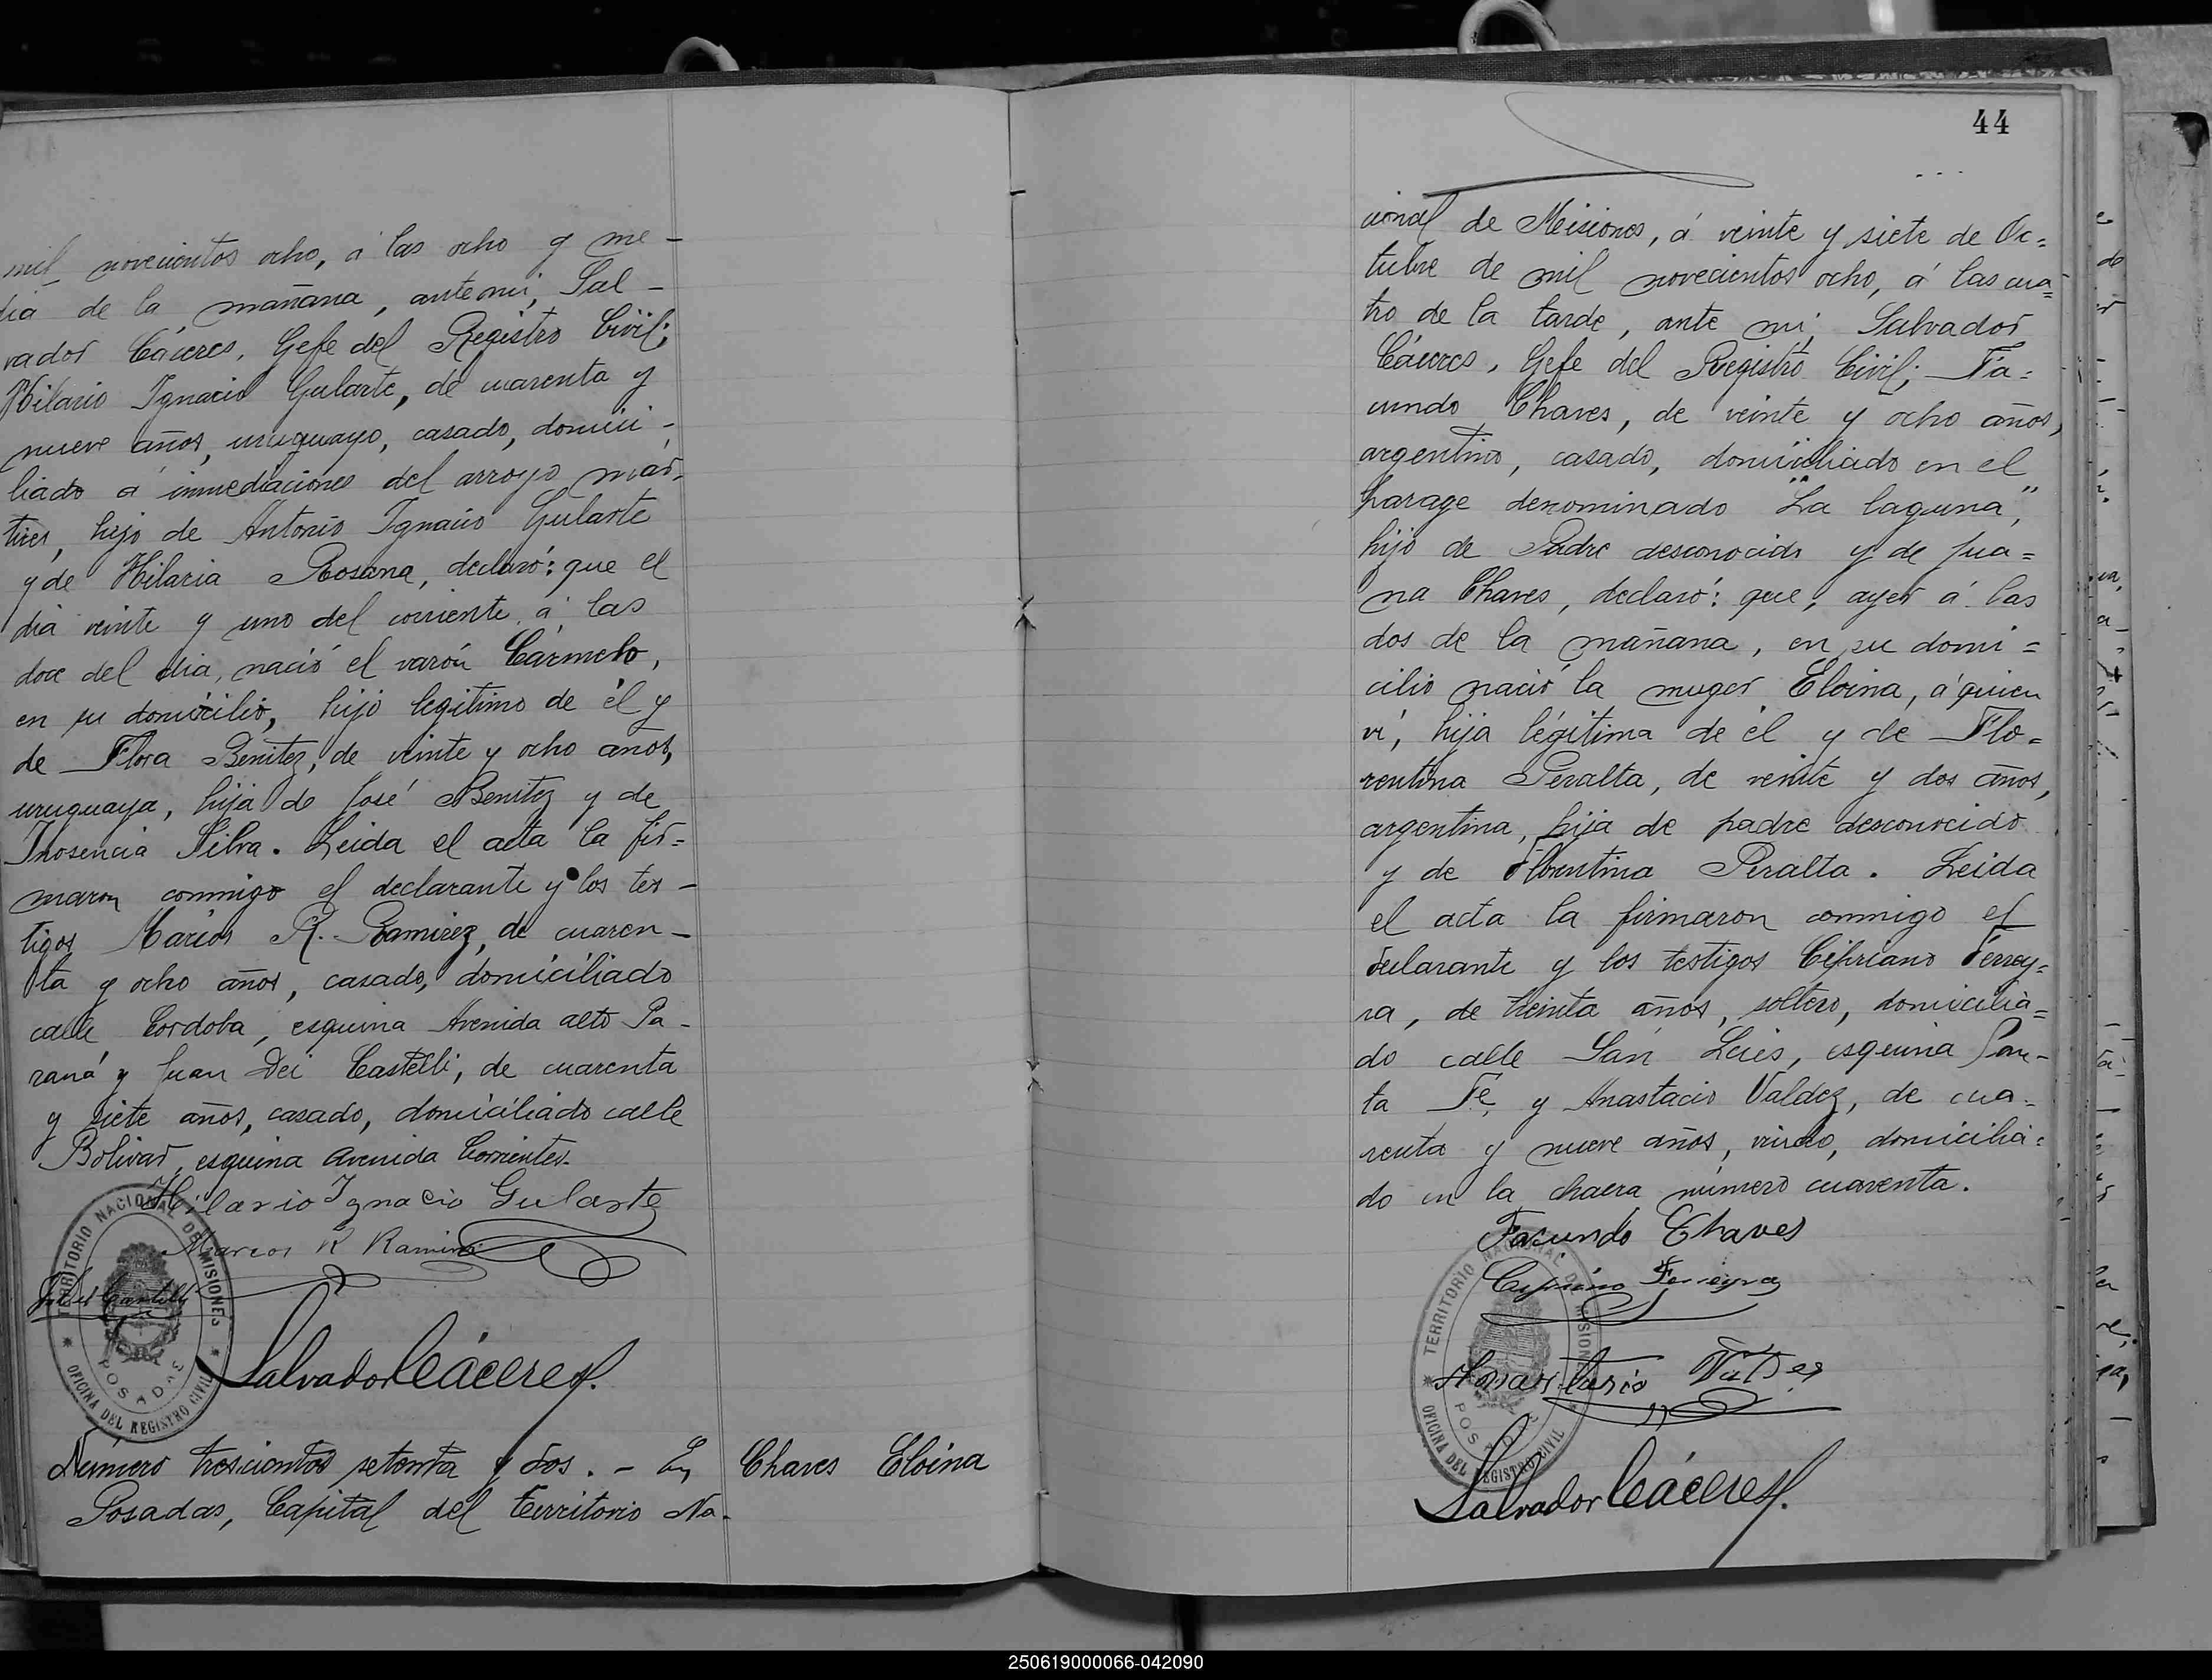 mil novecientos ocho, á las ocho y me-
dia de la mañana, ante mi, Sal-
vador Cáceres, Gefe del Registro Civil;
Hilario Ignacio Gularte, de cuarenta y
nueve años, uruguayo, casado, domici-
liado á inmediaciones del arroyo már-
tires, hijo de Antonio Ignacio Gularte
y de Hilaria Rosana, declaró: que el
dia veinte y uno del corriente á las
doce del dia, nació el varón Cármelo,
en su domicilio, hijo legitimo de él y
de Flora Benitez, de veinte y ocho años,
uruguaya, hija de José Benitez y de
Inosencia Silva. Leida el acta la fir=
maron conmigo el declarante y los tes-
tigos Marcos R. Ramirez, de cuaren-
ta y ocho años, casado, domiciliado
calle Cordoba, esquina Avenida alto Pa-
raná y Juan Dei Castelli, de cuarenta
y siete años, casado, domiciliado calle
Bolivar, esquina Avenida Corrientes.
Hilario Ignacio Gularte
Marcos R Ramirez
Salvador Cáceres
TERRITORIO NACIONAL DE MISIONES
POSADAS
OFICINA DEL REGISTRO CIVIL
Número trescientos setenta y dos. - En
Posadas, Capital del territorio Na-
Chaves Eloina
44
cional de Misiones, á veinte y siete de Oc=
tubre de mil novecientos ocho, á las cua=
tro de la tarde, ante mi, Salvador
Cáceres, Gefe del Registro Civil; Fa=
cundo Chaves, de veinte y ocho años,
argentino, casado, domiciliado en el
parage denominado "La laguna",
hijo de Padre desconocido y de Jua=
na Chaves, declaró: que, ayer á las
dos de la mañana, en su domi=
cilio nació la muger Eloina, á quien
vi, hija légitima de él y de Flo=
rentina Peralta, de veinte y dos años,
argentina, hija de padre desconocido
y de Florentina Peralta. Leida
el acta la firmaron conmigo el
declarante y los testigos Cipriano Ferrey=
ra, de treinta años, soltero, domicilia=
do calle San Luis, esquina San-
ta Fé, y Anastacio Valdez, de cua-
renta y nueve años, viudo, domicilia=
do en la chacra número cuarenta.
Facundo Chaves
Cipriano Ferreyra
Anastacio Valdez
Salvador Cáceres
TERRITORIO NACIONAL DE MISIONES
POSADAS
OFICINA DEL REGISTRO CIVIL
250619000066-042090